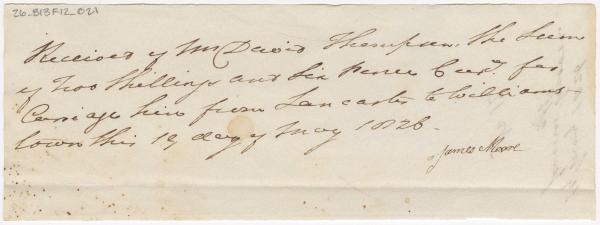 26_B13F12_021
Received of Mr David Thompson. the Sum
of two Shillings and Six pence Curr.y for
Carriage hire from Lancaster to Williams-
town this 19 day of May 1826.
James Moore